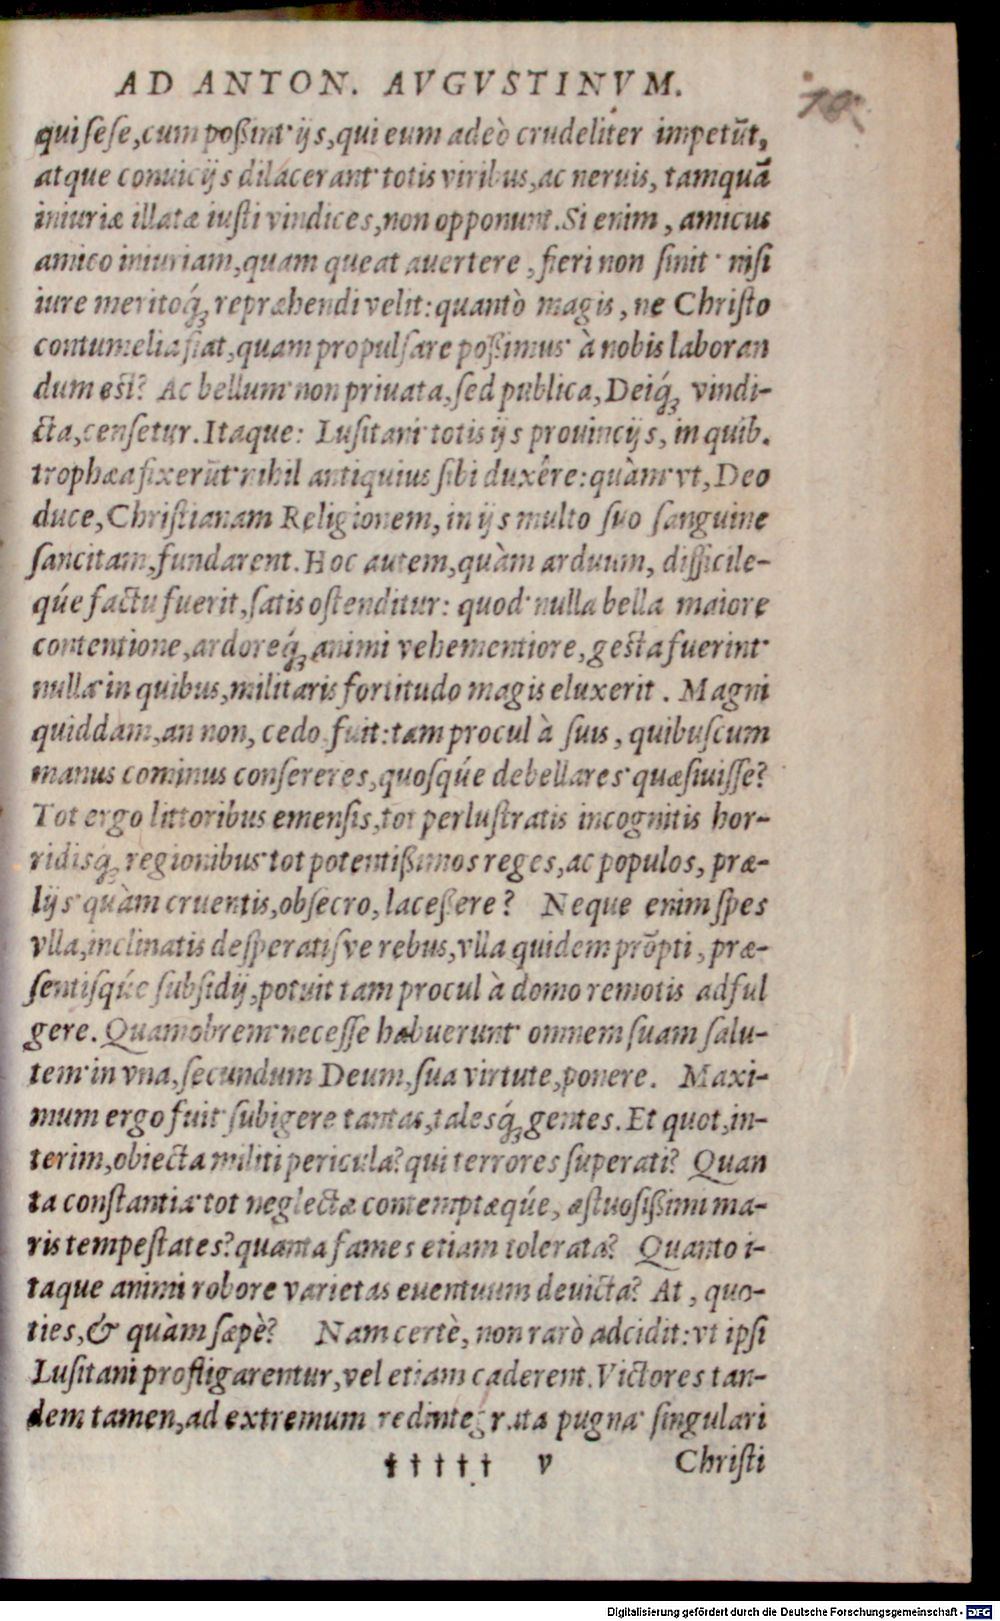 AD ANTON. AVGVSTINVM.
qui sese, cum poßint ijs, qui eum adeò crudeliter impetūt,
atque conuicijs dilacerant totis viribus, ac neruis, tamquā
iniuriæ illatæ iusti vindices, non opponunt. Si enim, amicus
amico iniuriam, quam queat auertere, fieri non sinit nisi
iure meritoq́ꝫ repræhendi velit: quantò magis, ne Christo
contumelia fiat, quam propulsare poßimus à nobis laboran
dum est? Ac bellum non priuata, sed publica, Deiq́ꝫ vindi-
cta, censetur. Itaque: Lusitani totis ijs prouincijs, in quib.
trophæa fixerūt nihil antiquius sibi duxêre: quàm vt, Deo
duce, Christianam Religionem, in ijs multo suo sanguine
sancitam, fundarent. Hoc autem, quàm arduum, difficile-
qúe factu fuerit, satis ostenditur: quod nulla bella maiore
contentione, ardoreq́ꝫ animi vehementiore, gesta fuerint
nulla in quibus, militaris fortitudo magis eluxerit. Magni
quiddam, an non, cedo fuit: tam procul à suis, quibuscum
manus cominus consereres, quosqúe debellares quæsiuisse?
Tot ergo littoribus emensis, tot perlustratis incognitis hor-
ridisq́ꝫ regionibus tot potentißimos reges, ac populos, præ-
lijs quàm cruentis, obsecro, laceßere? Neque enim spes
vlla, inclinatis desperatisve rebus, vlla quidem prōpti, præ-
sentisqúe subsidij, potuit tam procul à domo remotis adful
gere. Quamobrem necesse habuerunt omnem suam salu-
tem in vna, secundum Deum, sua virtute, ponere. Maxi-
mum ergo fuit subigere tantas, talesq́ꝫ gentes. Et quot, in-
terim, obiecta militi pericula? qui terrores superati? Quan
ta constantia tot neglectæ contemptæqúe, æstuosißimi ma-
ris tempestates? quanta fames etiam tolerata? Quanto i-
taque animi robore varietas euentuum deuicta? At, quo-
ties, & quàm sæpè? Nam certè, non rarò adcidit: vt ipsi
Lusitani profligarentur, vel etiam caderent. Victores tan-
dem tamen, ad extremum redintegrata pugna singulari
† † † † † v Christi
Digitalisierung gefördert durch die Deutsche Forschungsgemeinschaft - DFG